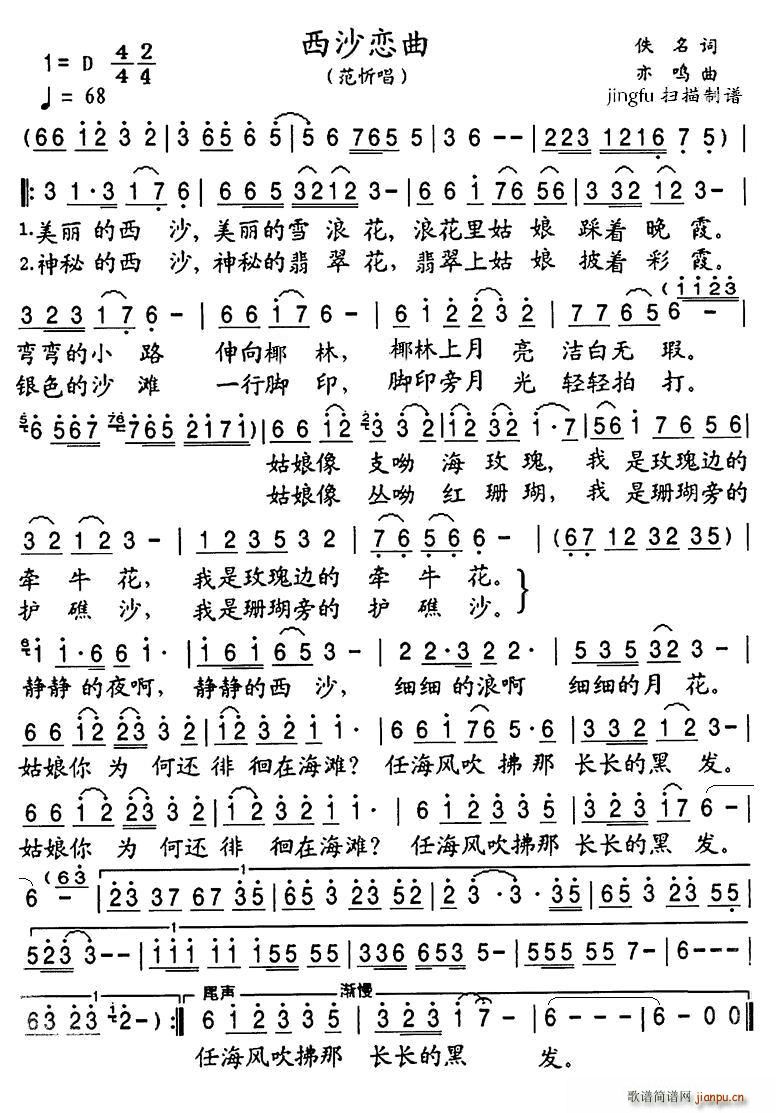 西沙恋曲
(范忻唱)
1= D 4/4 2/4
♩= 68
佚 名 词
亦 鸣 曲
jingfu 扫描制谱
(66 12 3 2 | 3 65 6 5 | 5 6 765 5 | 5 6 5 - | 223 1216 7 5) |
3 1·3 17 6 | 66 5 3212 3- | 66 1 76 56 | 3 32 12 3- |
1.美丽的西 沙,美丽的雪 浪 花,浪花里姑 娘 踩着晚 霞。
2.神秘的西 沙,神秘的翡 翠 花,翡翠上姑 娘 披着彩 霞。
(1123
3 23 17 6 - | 66 17 6 - | 61 22 3 2 | 77 65 6 - |
弯弯的小 路 伸向椰 林, 椰林上月 亮 洁白无 瑕。
银色的沙 滩 一行脚 印, 脚印旁月 光 轻轻拍 打。
6 567 765 2171) | 66 12 3 3 2 | 12 32 1·7 | 561 76 56 |
姑娘像 支呦 海 玫 瑰, 我 是玫瑰边的
姑娘像 丛呦 红 珊 瑚, 我 是珊瑚旁的
32 12 3- | 12 35 32 | 76 56 6 - | (67 12 32 35) |
牵 牛 花, 我是玫瑰边的 牵 牛 花。
护 礁 沙, 我是珊瑚旁的 护 礁 沙。
1 1·6 61 | 161 653 - | 22·3 22 | 535 32 3- |
静静的夜啊, 静静的西 沙, 细细 的浪啊 细细的月 花。
66 12 23 3 2 | 12 32 21 1· | 661 76 5·6 | 332 12 3- |
姑娘你 为 何还徘 徊在海滩? 任海风吹 拂那 长长的黑 发。
66 12 23 3 2 | 12 32 21 1· | 61 23 35 | 323 17 6- |
姑娘你 为 何还徘 徊在海滩? 任海风吹拂那 长长的黑 发。
(63 1
6 - | 23 37 67 35 | 65 3 23 52 | 23 3·35 | 65 3 23 55 |
1
523 3-- | 111 111 55 55 | 336 653 5- | 555 55 7- | 6--- |
1 尾声 渐慢
63 23 2-) :| 61 23 35 | 323 17- | 6--- | 6-00 ||
任海风吹拂那 长长的黑 发。
歌谱简谱网 jianpu.cn